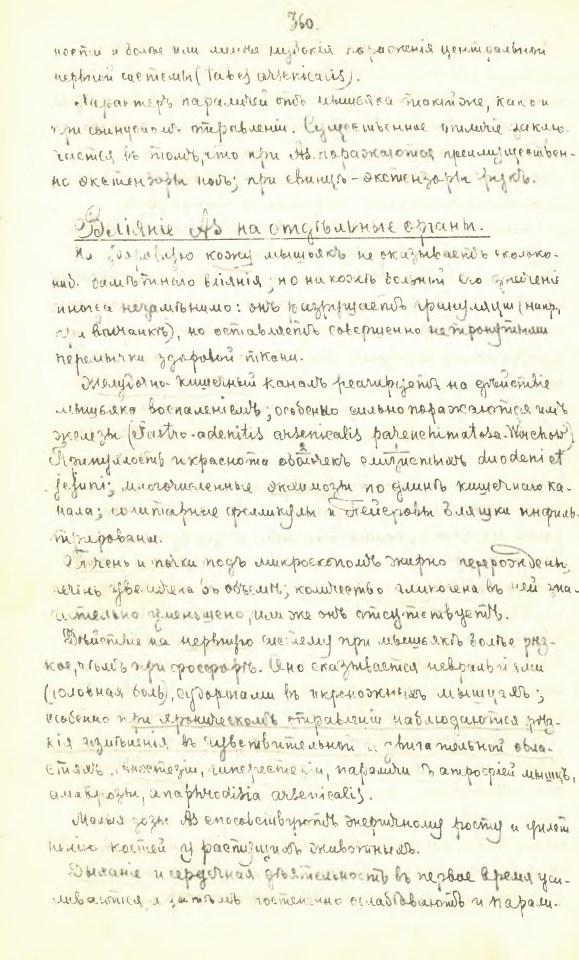 360.
ности и болѣе или менѣе глубокія поражения центральной
нервной системы (Tabes arsenicalis).
Характеръ параличей отъ мышьяка такой же, какъ и
при свинцовомъ отравленіи. Существенное отличіе заклю-
чается въ томъ, что при As поражаются преимуществен-
но экстензоры ногъ; при свинцѣ - экстензоры рукъ.
Вліяніе As на отдѣльные органы.
На здоровую кожу мышьякъ не оказываетъ сколько-
ниб. замѣтнаго вліянія; но на кожѣ больной его значеніе
иногда незамѣнимо: онъ разрушаетъ грануляціи (напр.,
при волчанкѣ), но оставляетъ совершенно нетронутыми
перемычки здоровой ткани.
Желудочно-кишечный каналъ реагируетъ на дѣйствіе
мышьяка воспаленіемъ; особенно сильно поражаются имъ
железы (Gastro-adenitis arsenicalis parenchimatosa-Wirchow).
Припухлость и краснота оболочекъ слизистыхъ duodeni et
jejuni; многочисленные экхимозы по длинѣ кишечнаго ка-
нала; солитарные фолликулы и Пейеровы бляшки инфиль-
трированы.
Печень и почки подъ микроскопомъ жирно перерождены,
печень увеличена въ объемѣ; количество гликогена въ ней зна-
чительно уменьшено, или же онъ отсутствуетъ.
Дѣйствіе на нервную систему при мышьякѣ болѣе рѣз-
кое, чѣмъ при фосфорѣ. Оно сказывается невральгіями
(головная боль), судорогами въ икроножныхъ мышцахъ;
особенно при хроническомъ отравленіи наблюдаются рѣз-
кія измѣненія въ чувствительной и двигательной обла-
стяхъ: анестезіи, гиперестезіи, параличи съ атрофіей мышцъ,
амаврозы, anaphrodisia arsenicalis.
Малыя дозы As способствуютъ энергичному росту и уплот-
ненію костей у растущихъ животныхъ.
Дыханіе и сердечная дѣятельность въ первое время уси-
ливаются, а затѣмъ постепенно ослабѣваютъ и парали-